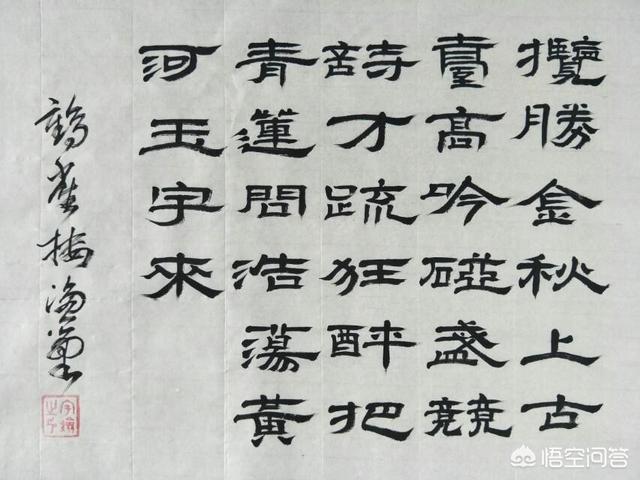 攬勝金秋上古
臺高吟碰盞競
詩才疏狂醉把
青蓮問浩蕩黃
河玉宇來
雀樓
悟空问答